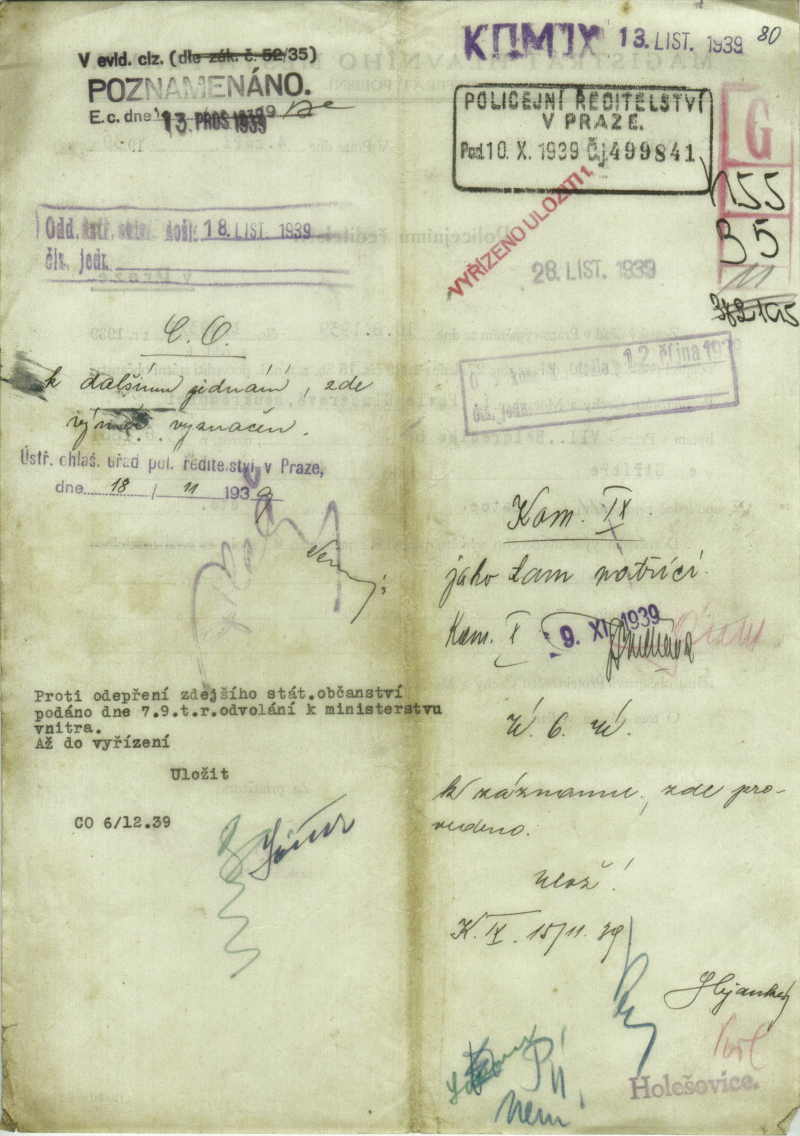 V evid. ciz. (dle zák. č. 52/35)
POZNAMENÁNO.
E. c. dne
13 PROS 1939
KOM IX 13. LIST. 1939
80
POLICEJNÍ ŘEDITELSTVÍ
V PRAZE.
Pod 10. X. 1939 Čj 499841
G
155
35
11
VYŘÍZENO ULOŽITI
28. LIST. 1939
Odd. došl. 18. LIST. 1939
čís. jedn.
12. října 193
C. O.
k dalšímu jednání, zde
vyznačen.
Ústř. ohlaš. úřad pol. ředitelství v Praze,
dne 18 / 11 1939
Proti odepření zdejšího stát.občanství
podáno dne 7.9.t.r.odvolání k ministerstvu
vnitra.
Až do vyřízení
Uložit
CO 6/12.39
Kom. IX.
jako tam patřící.
Kom. X
9. XI. 1939
k záznamu, zde pro-
vedeno.
Ulož!
K. IX. 15/11. 39
Holešovice.
není